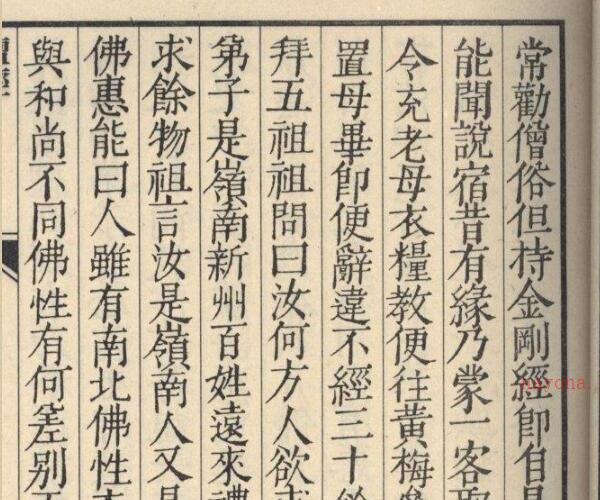 常勸僧俗但持金剛經即自
能聞說宿昔有緣乃蒙一客
令充老母衣糧教便往黃梅
置母畢即便辭違不經三十
拜五祖祖問曰汝何方人欲
弟子是嶺南新州百姓遠來禮
求餘物祖言汝是嶺南人又
佛惠能曰人雖有南北佛性
與和尚不同佛性有何差別